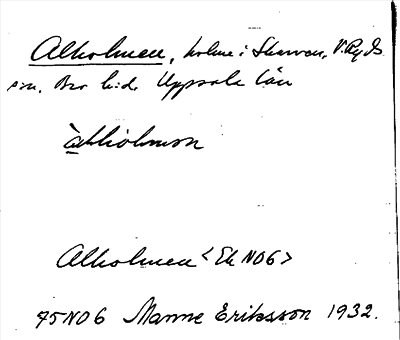 Alholmen, holme i Skarven, V. Ryds
sn, Bro hd. Uppsala län
àlhòlmən
Alholmen <Ek NO6>
75NO6 Manne Eriksson 1932.